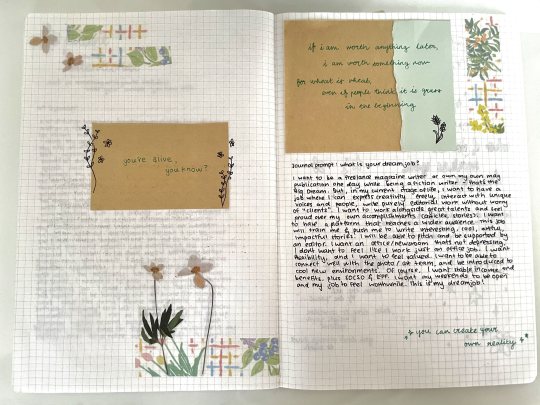 you're alive,
you know?
if i am worth anything later,
i am worth something now
for wheat is wheat,
even if people think it is grass
in the beginning.
Journal prompt: what is your dream job?
I want to be a freelance magazine writer or own my own mag
publication one day while being a fiction writer - that's the
Big Dream. But, in my current stage of life, I want to have a
job where I can express creativity freely, interact with unique
voices and people, write purely editorial work without worry
of "clients". I want to work alongside great talents and feel
proud over my own accomplishments (articles, stories). I want
to have a platform that reaches a wider audience. This job
will train me & push me to write interesting, real, artful,
impactful stories. I will be able to pitch and be supported by
an editor. I want an office/newsroom that's not depressing,
I don't want to feel like I work just an office job. I want
flexibility, and I want to feel valued. I want to be able to
connect well with the photo / art team, and be introduced to
cool new environments. Of course, I want stable income, and
benefits, plus SOCSO & EPF. I want my weekends to be open
and my job to feel worthwhile. This is my dream job!
you can create your
own reality